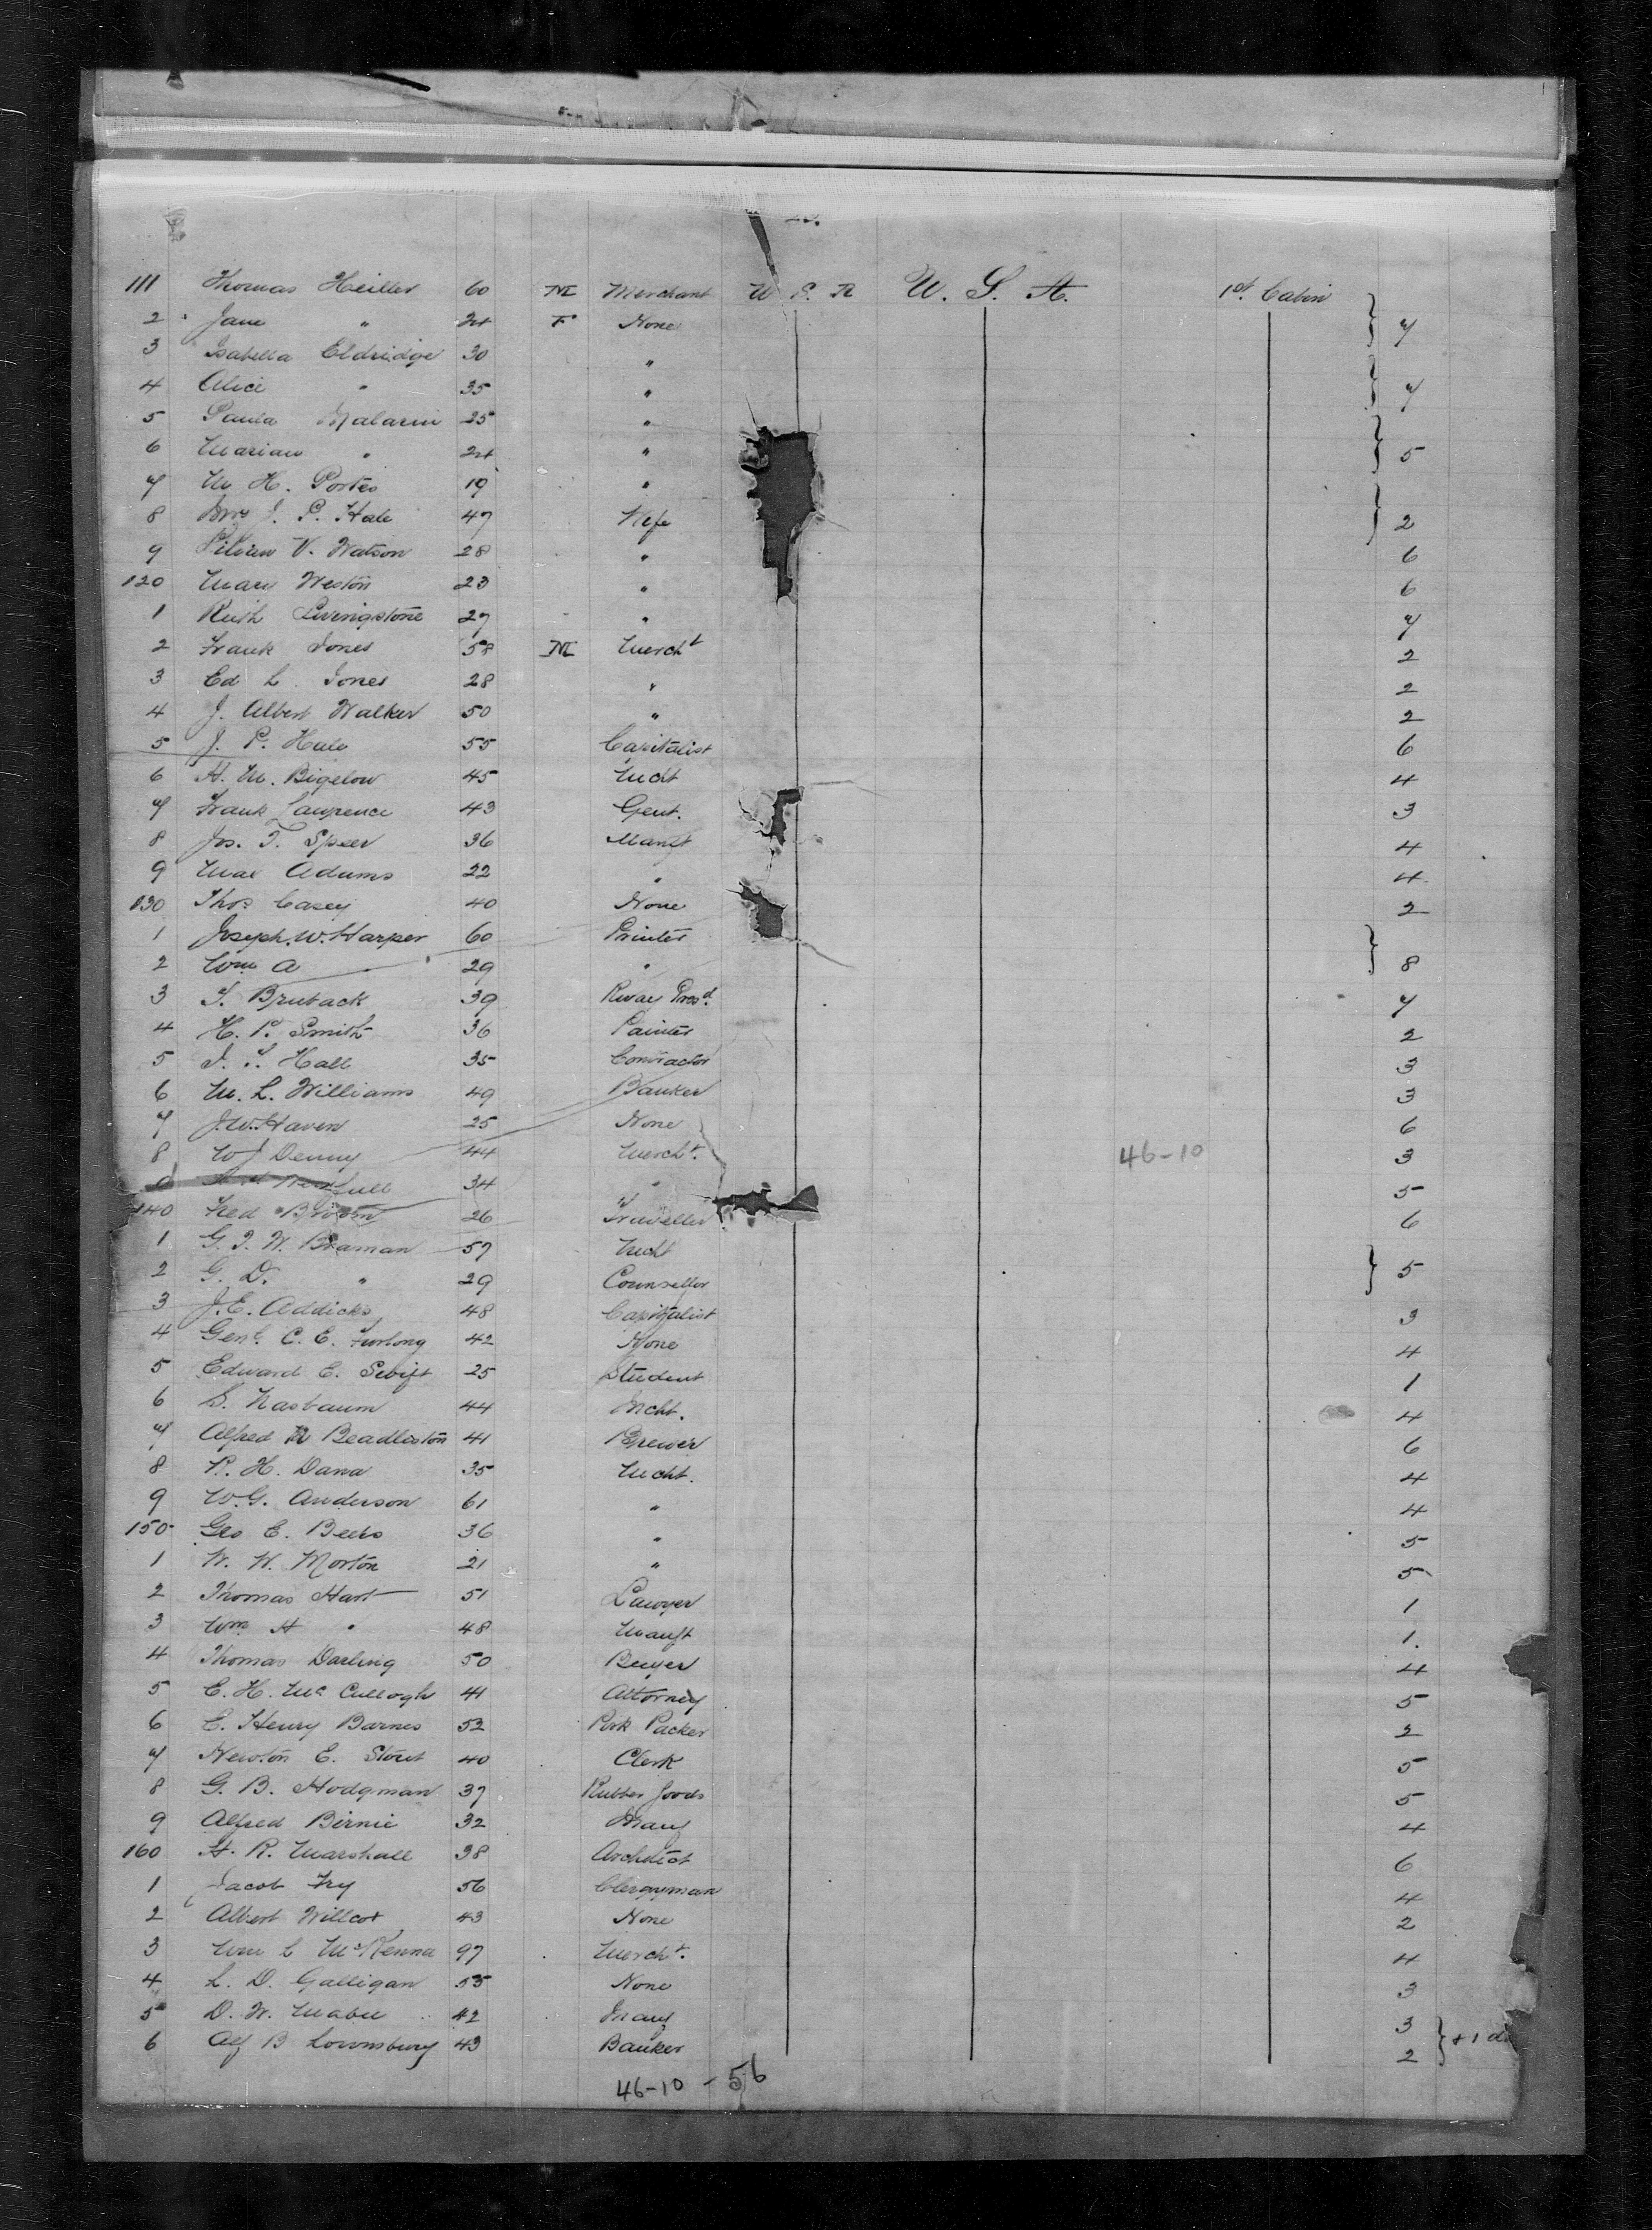 111 Thomas Heiller 60 M Merchant U S A U. S. A. 1st. Cabin
2 Jane " 24 F None 7
3 Isabella Eldridge 30 "
4 Alice " 35 " 7
5 Paula Malarin 25 "
6 Marian " 24 " 5
7 M H. Porter 19 "
8 Mrs J. P. Hale 47 Wife 2
9 Lilian V. Watson 28 " 6
120 Mary Weston 23 " 6
1 Ruth Livingstone 27 " 7
2 Frank Jones 58 M Mercht 2
3 Ed L. Jones 28 " 2
4 J. Albert Walker 50 " 2
5 J. P. Hale 55 Capitalist 6
6 H. M. Bigelow 45 Mcht 4
7 Frank Lawrence 43 Gent. 3
8 Jos. T. Speer 36 Manft 4
9 Max Adams 22 " 4
130 Thos Casey 40 None 2
1 Joseph. W. Harper 60 Printer
2 Wm A " 29 " 8
3 39 Rway Presd. 7
4 H. P. Smith 36 Painter 2
5 J. T. Hall 35 Contractor 3
6 M. L. Williams 49 Banker 3
7 J. W. Haven 25 None 6
8 W J Denny 44 Mercht. 46-10 3
9 34 " 5
140 Fred Broom 26 Traveller 6
1 G. T. W. Braman 57 Mcht
2 G. D. " 29 Counsellor 5
3 J. E. Addicks 48 Capitalist 3
4 Genl. C. E. Furlong 42 None 4
5 Edward C. Swift 25 Student 1
6 S. Nasbaum 44 Mcht. 4
7 Alfred N Beadleston 41 Brewer 6
8 P. H. Dana 35 Mcht. 4
9 W. G. Anderson 61 " 4
150 Geo E. Beeks 36 " 5
1 W. W. Morton 21 " 5
2 Thomas Hart 51 Lawyer 1
3 Wm H " 48 Manft 1.
4 Thomas Darling 50 Buyer 4
5 E. H. Mc Cullogh 41 Attorney 5
6 E. Henry Barnes 52 Pork Packer 2
7 Newton E. Stout 40 Clerk 5
8 G. B. Hodgman 37 Rubber Goods 5
9 Alfred Birnie 32 Manf 4
160 H. R. Marshall 38 Architect 6
1 Jacob Fry 56 Clergyman 4
2 Albert Willcox 43 None 2
3 Wm L McKenna 97 Mercht. 4
4 L. D. Galligan 55 None 3
5 D. W. Mabee 42 Manf 3
6 Alf B Lounsbury 43 Banker 2 +1
46-10 - 56